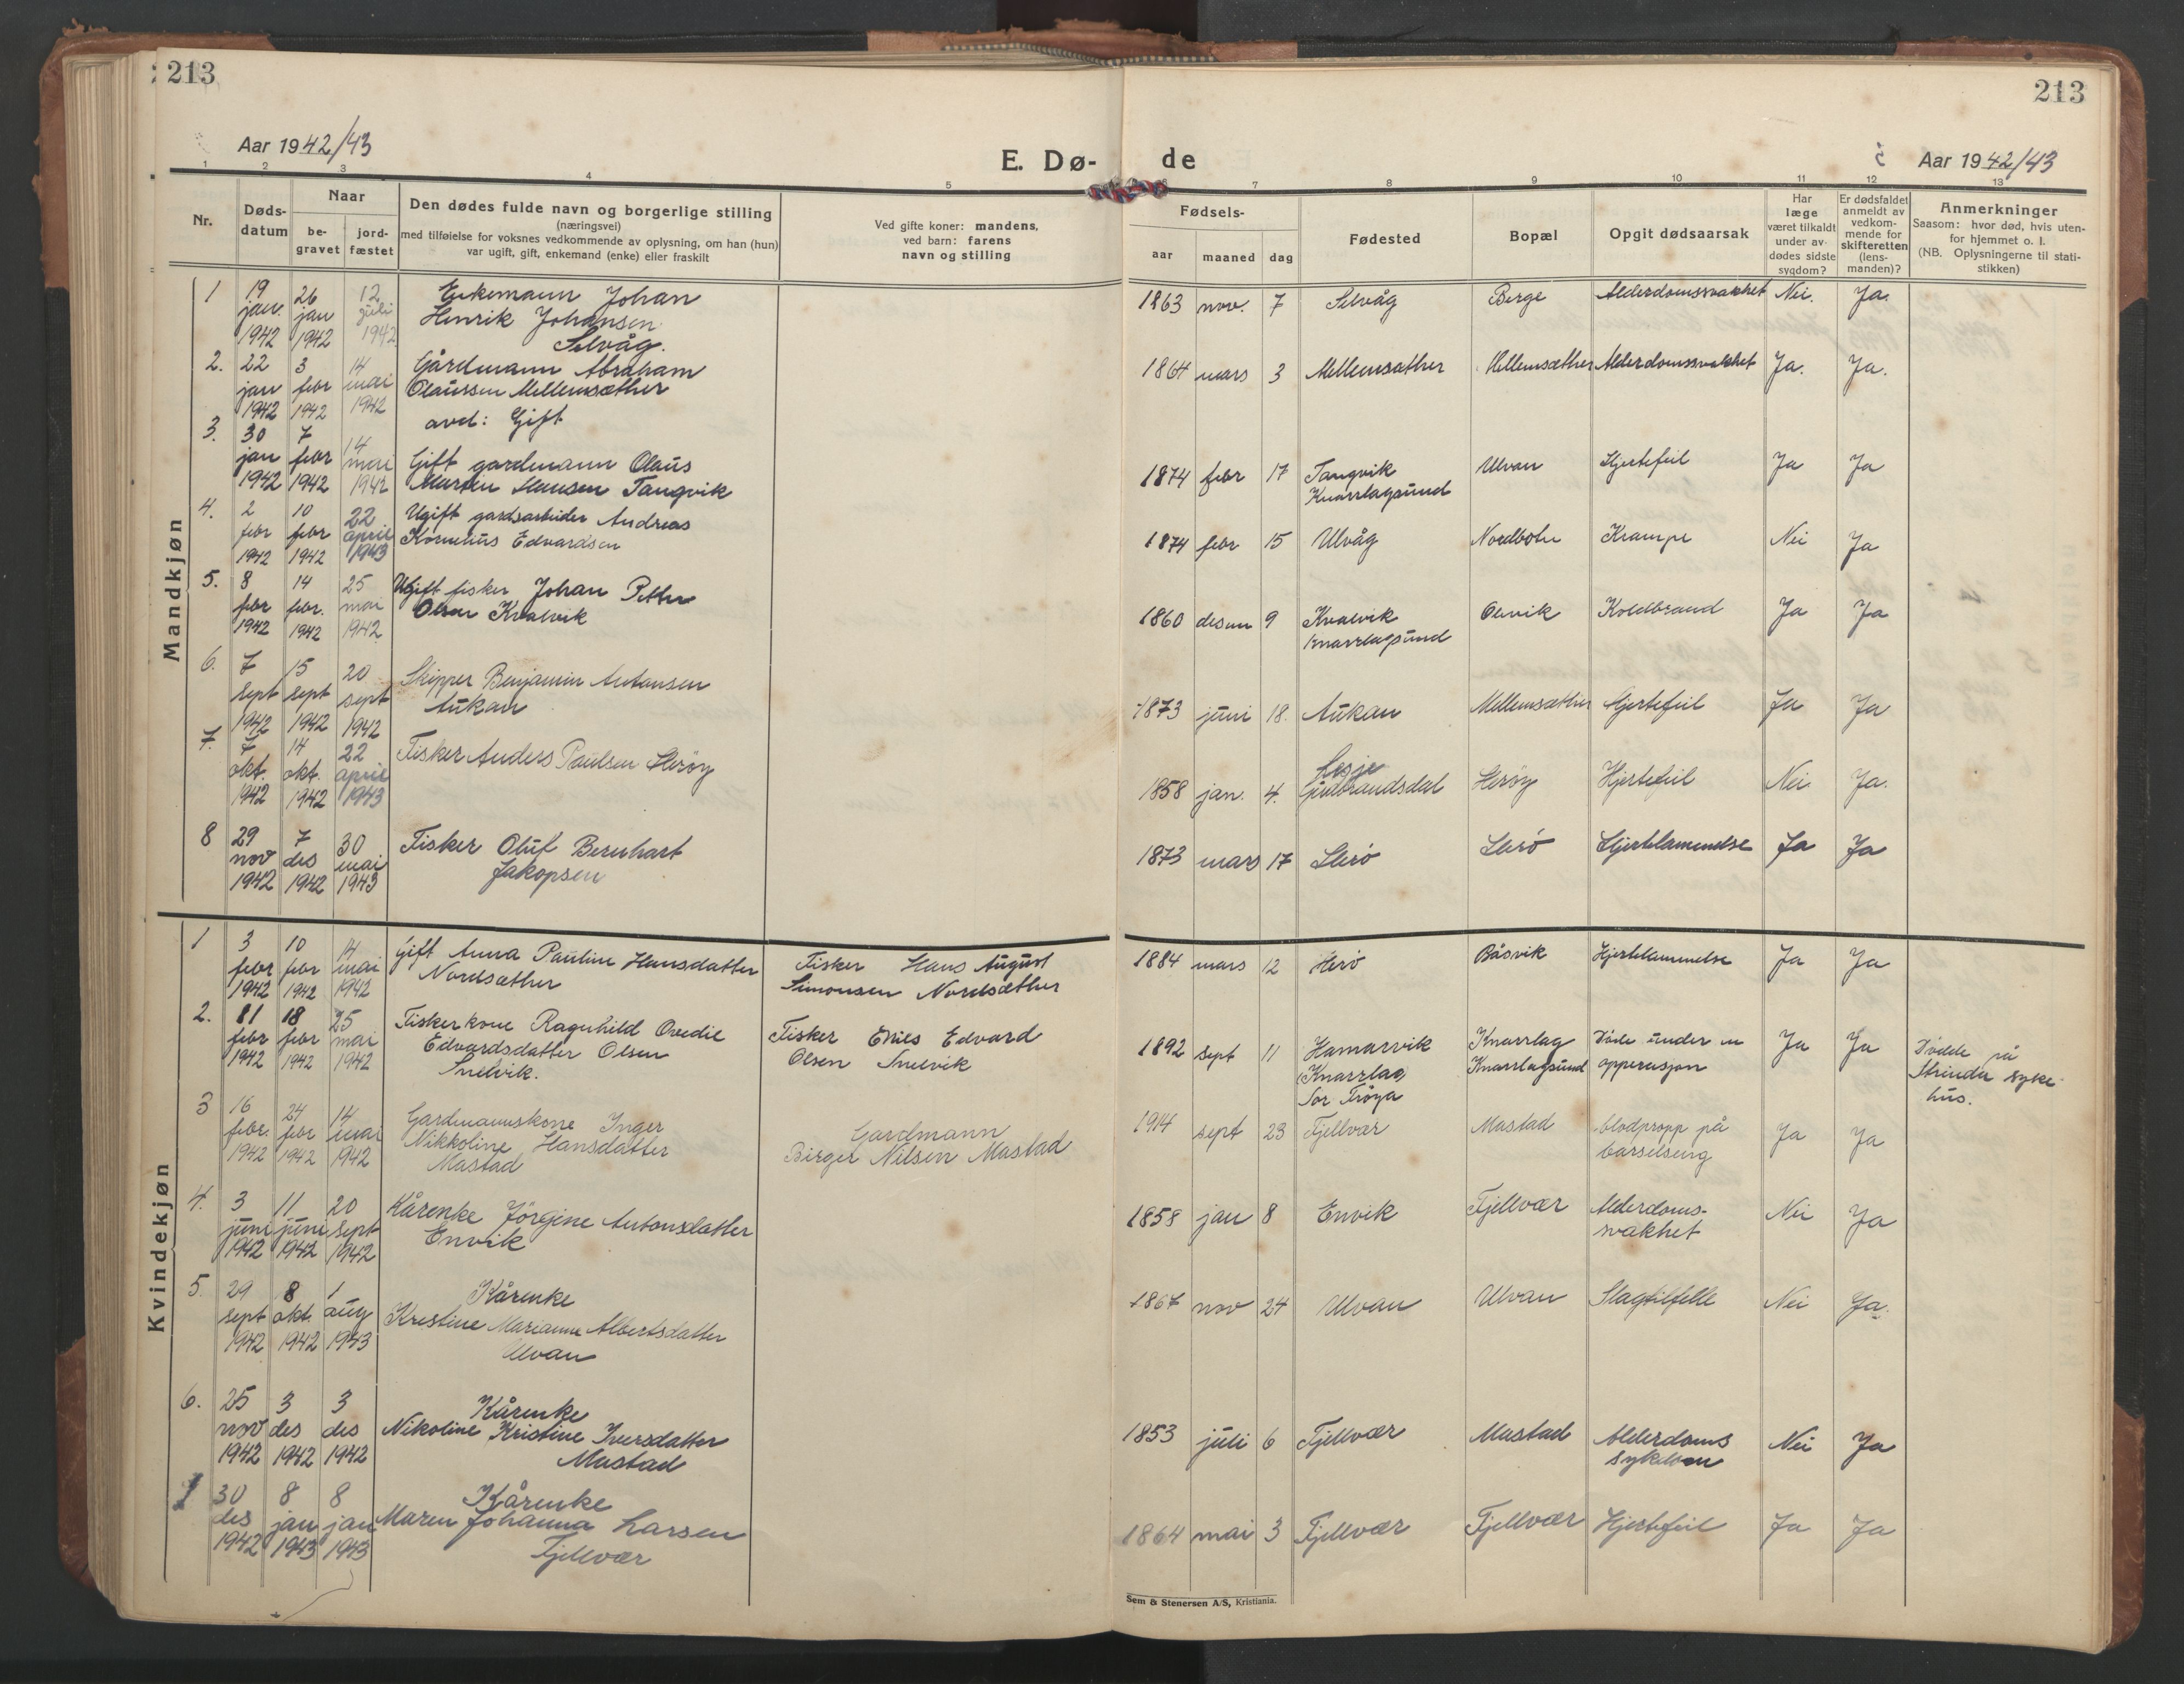 213
213
Aar 1942/43
E. Dø-
de
Aar 1942/43
1 2 3 4 5 7 8 9 10 11 12 13
Nr.
Døds-
datum
Naar
be-
gravet
jord-
fæstet
Den dødes fulde navn og borgerlige stilling
(næringsvei)
med tilføielse for voksnes vedkommende av oplysning, om han (hun)
var ugift, gift, enkemand (enke) eller fraskilt
Ved gifte koner: mandens,
ved barn: farens
navn og stilling
Fødsels-
aar
maaned
dag
Fødested
Bopæl
Opgit dødsaarsak
Har
læge
været tilkaldt
under av-
dødes sidste
sygdom?
Er dødsfaldet
anmeldt av
vedkom-
mende for
skifteretten
(lens-
manden)?
Anmerkninger
Saasom: hvor død, hvis uten-
for hjemmet o. l.
(NB. Oplysningerne til stati-
stikken)
Mandkjøn
1 19 26 12 Enkemann Johan 1863 nov. 7 Selvåg Berge Alderdomssvakhet Nei. Ja.
jan. jan juli Henrik Johansen
1942 1942 1942 Selvåg.
2. 22 3 14 Gårdmann Abraham 1864 mars 3 Mellemsæther Mellemsæther Alderdomssvakhet Ja. Ja.
jan febr mai Olaussen Mellemsæther
1942 1942 1942 avd: Gift
3. 30 7 14
jan febr mai Gift gardmann Olaus 1874 febr 17 Tangvik Ulvan Hjertefeil Ja Ja
1942 1942 1942 Marten Hansen Tangvik Knarrlagsund
4. 2 10 22 Ugift gardsarbeider Andreas 1874 febr 15 Ulvåg Nordbotn Krampe Nei Ja
febr febr april Kornelius Edvardsen
1942 1942 1943
5. 8 14 25 Ugift fisker Johan Petter 1860 desem 9 Kvalvik Olsvik Koldbrand Ja Ja
febr febr. mai Olsen Kvalvik Knarrlagsund
1942 1942 1942
6. 7 15 20 Skipper Benjamin Antonsen 1873 juni 18. Aukan Mellemsæther Hjertefeil Ja Ja
sept sept sept Aukan
1942 1942 1942
7. 7 14 22 Fisker Anders Paulsen Herøy 1858 jan. 4. Lesje Herøy Hjertefeil Nei. Ja.
okt. okt. april Gudbrandsdal
1942 1942 1943
8 29 7 30 Fisker Oluf Bernhart 1873 mars 17 Herö Herö Hjertelammelse Ja Ja
nov des mai Jakopsen
1942 1942 1943
Kvindekjøn
1 3 10 14 Gift Anna Pauline Hansdatter Fisker Hans August 1884 mars 12 Herö Båsvik Hjertelammelse Ja Ja
febr febr mai Nordsæther Simonsen Nordsæther
1942 1942 1942
2. 11 18 25 Fiskerkone Ragnhild Ovedie Fisker Edvard 1892 sept 11 Hamarvik Knarrlag Døde under en Ja Ja Dødde på
febr febr mai Edvardsdatter Olsen Olsen Snelvik (Knarrlag) Knarrlagsund opperasjon Strinda syke-
1942 1942 1942 Snelvik. Sør Frøya hus.
3 16 24 14 Gardmannskone Inger Gardmann 1914 sept 23 Fjellvær Mastad blodpropp på Ja Ja
febr. febr mai Nikkoline Hansdatter Birger Nilsen Mastad barselseng
1942 1942 1942 Mastad
4. 3 11 20 Kårenke Jörgine Antonsdatter 1858 jan 8 Envik Fjellvær Alderdoms- Nei Ja
juni juni sept Envik svakhet
1942 1942 1942
5. 29 8 1 Kårenke 1867 nov 24 Ulvan Ulvan Slagtilfelle Nei Ja.
sept okt. aug Kristine Marianne Albertsdatter
1942 1942 1943 Ulvan
6. 25 3 3 Kårenke 1853 juli 6 Fjellvær Mastad Alderdoms Nei Ja
nov des des Nikoline Kristine Iversdatter
1942 1942 1942 Mastad
30 8 8 Kårenke 1864 mai 3 Fjellvær Fjellvær Hjertefeil Ja Ja
des jan jan Maren Johanna Larsen
1942 1943 1943 Fjellvær
Sem & Stenersen A/S, Kristiania.